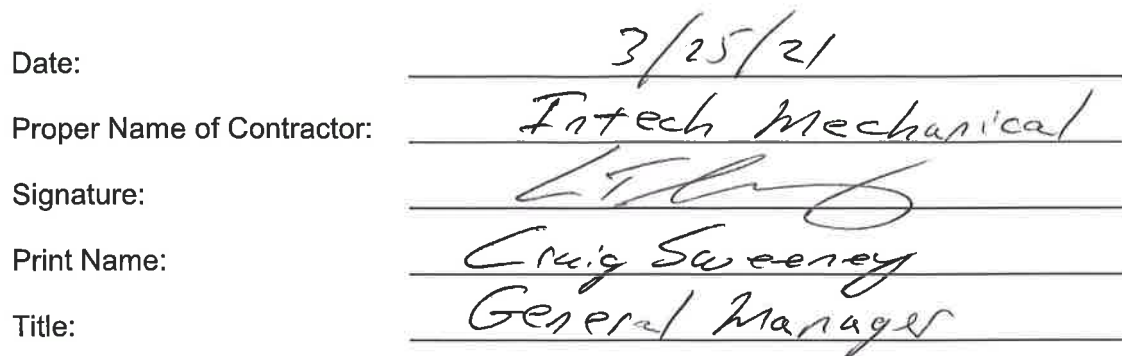 Date: 3/25/21
Proper Name of Contractor: Intech Mechanical
Signature:
Print Name: Craig Sweeney
Title: General Manager